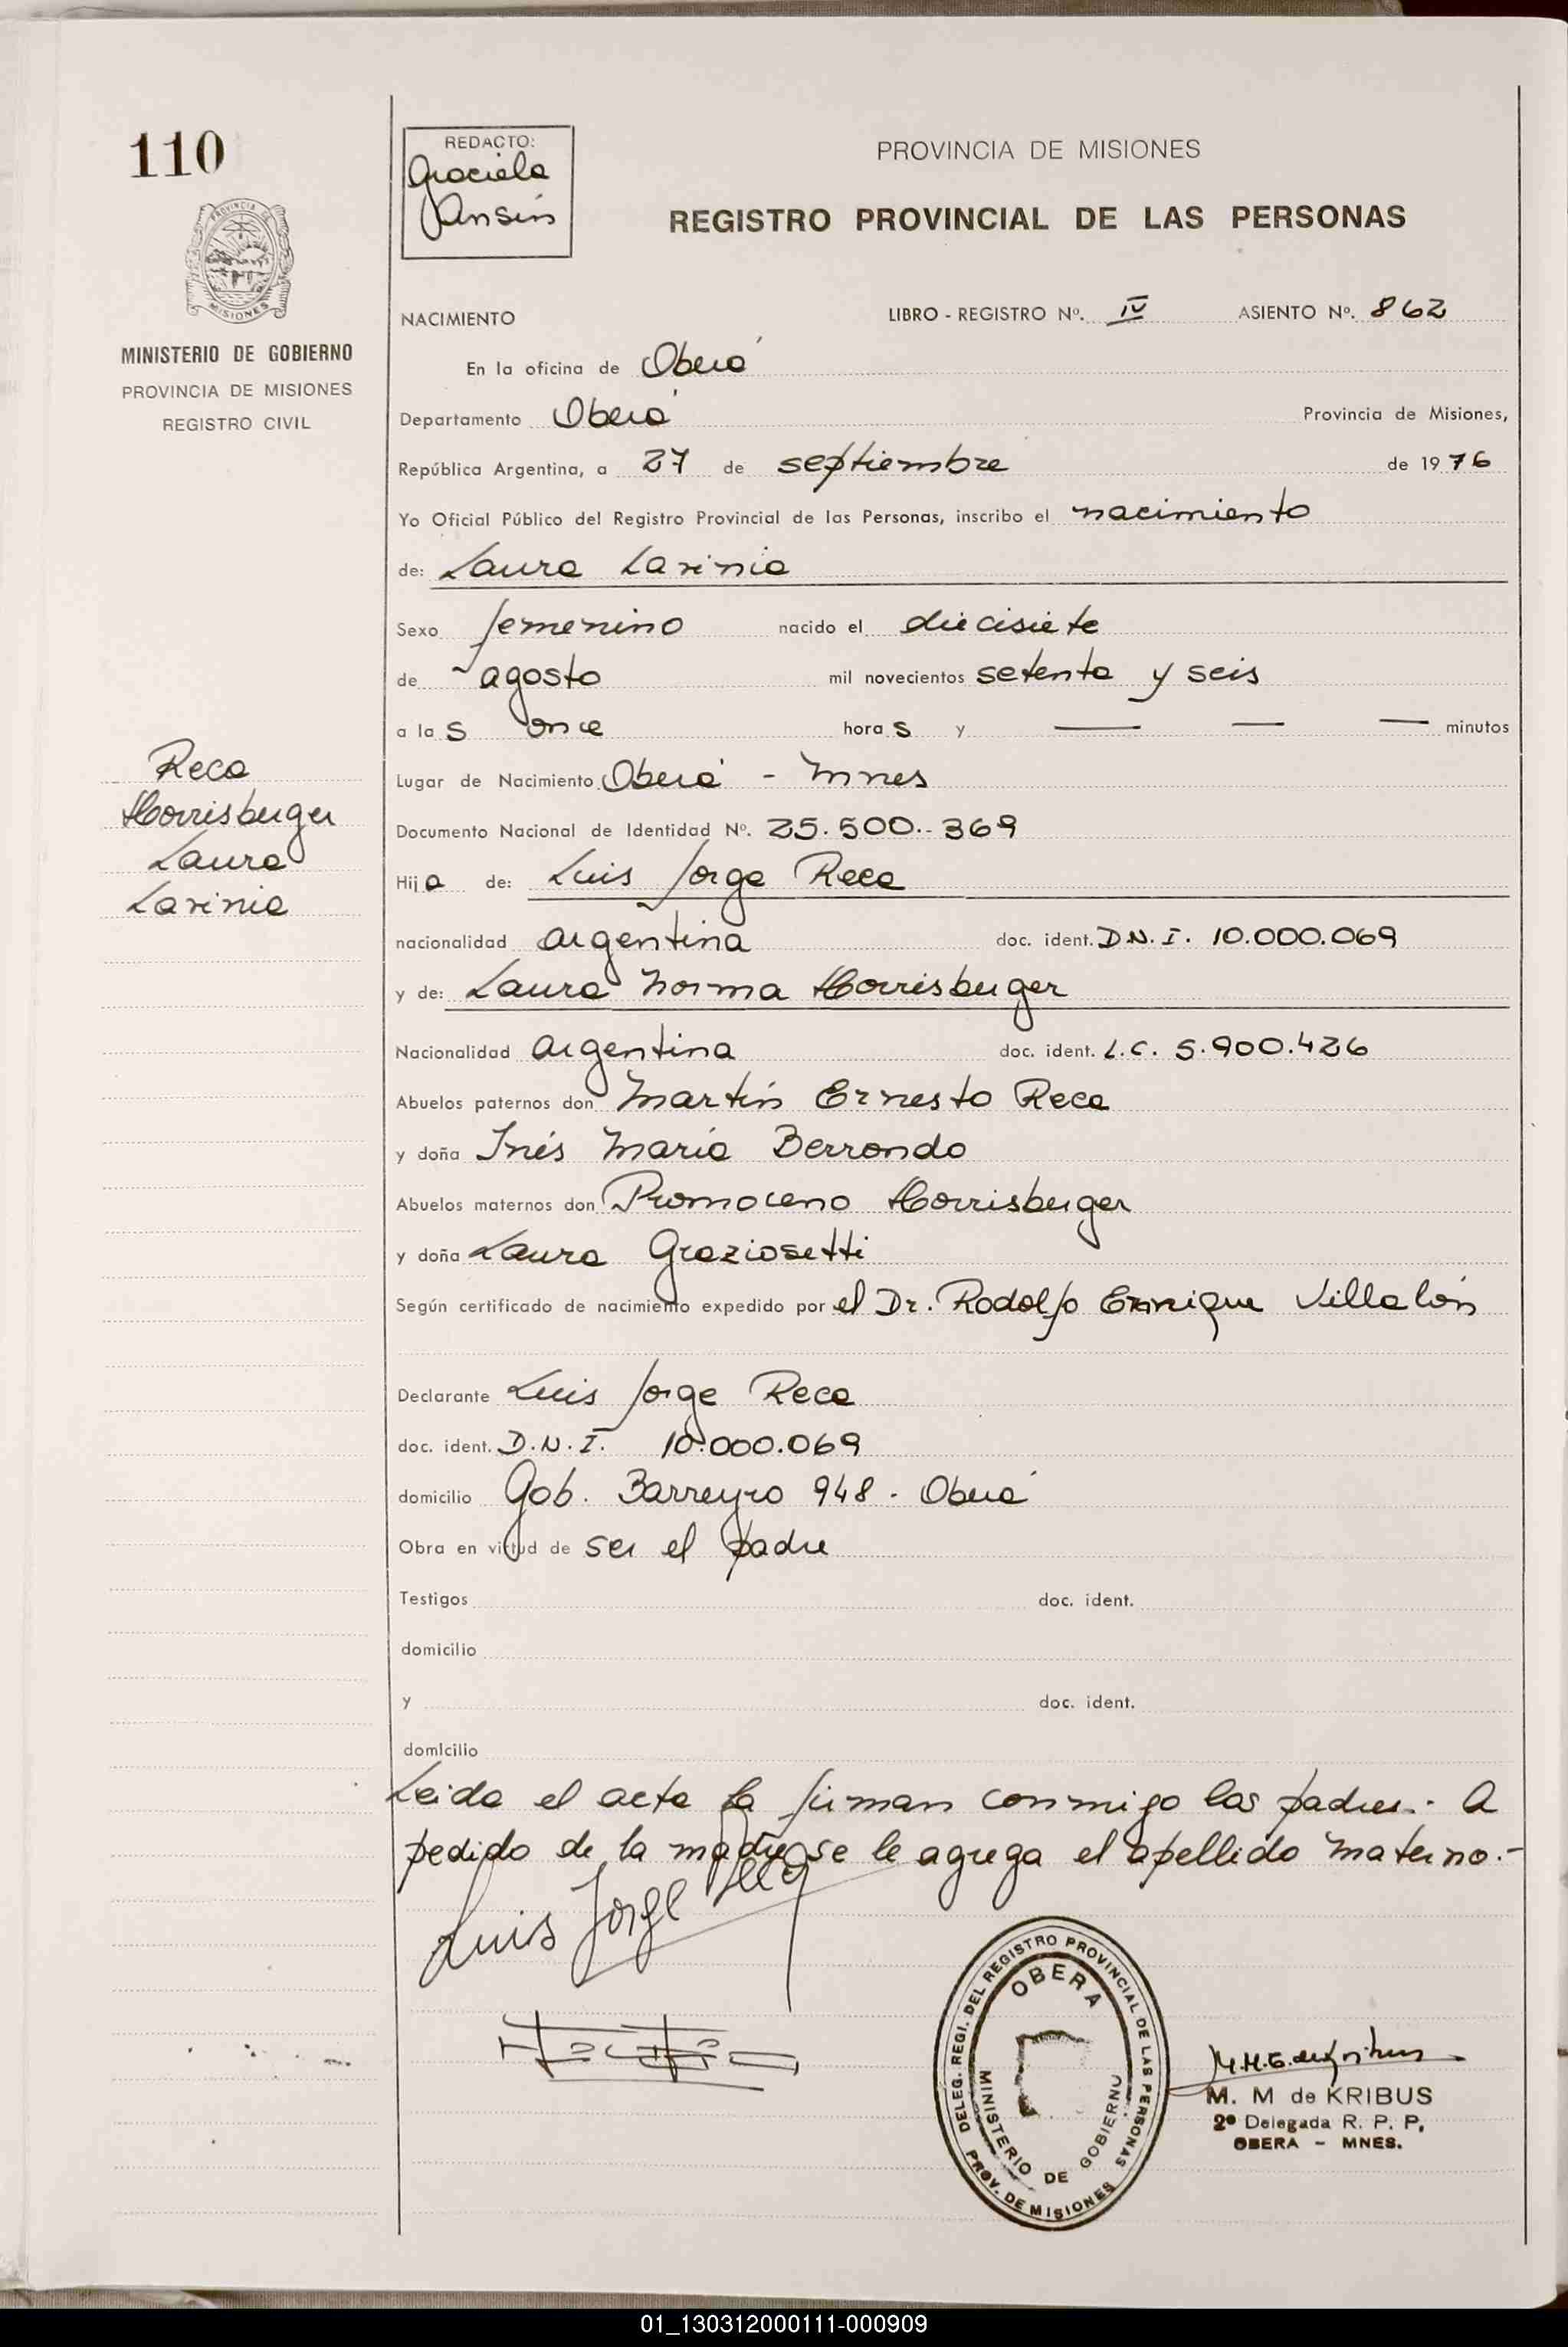 110
REDACTO:
Graciela
Ansin
PROVINCIA DE MISIONES
REGISTRO PROVINCIAL DE LAS PERSONAS
PROVINCIA DE
MISIONES
MINISTERIO DE GOBIERNO
PROVINCIA DE MISIONES
REGISTRO CIVIL
NACIMIENTO LIBRO - REGISTRO Nº. IV ASIENTO Nº. 862
En la oficina de Oberá
Departamento Oberá Provincia de Misiones,
República Argentina, a 27 de septiembre de 1976
Yo Oficial Público del Registro Provincial de las Personas, inscribo el nacimiento
de: Laura Lavinia
Sexo femenino nacido el diecisiete
de agosto mil novecientos setenta y seis
a las once horas y — — — minutos
Lugar de Nacimiento Oberá - Mnes
Documento Nacional de Identidad Nº. 25.500.-369
Hija de: Luis Jorge Reca
nacionalidad argentina doc. ident. D.N.I. 10.000.069
y de: Laura Norma Horrisberger
Nacionalidad argentina doc. ident. L.C. 5.900.426
Abuelos paternos don Martín Ernesto Reca
y doña Inés María Berrondo
Abuelos maternos don Horrisberger
y doña Laura Graziosetti
Según certificado de nacimiento expedido por el Dr. Rodolfo Enrique Villalón
Declarante Luis Jorge Reca
doc. ident. D.N.I. 10.000.069
domicilio Gob. Barreyro 948 - Oberá
Obra en virtud de ser el padre
Testigos doc. ident.
domicilio
y doc. ident.
domicilio
Leida el acta la firman conmigo los padres.- A
pedido de la madre se le agrega el apellido materno.-
Reca
Horrisberger
Laura
Lavinia
Luis Jorge Reca
DELEG. REGI. DEL REGISTRO PROVINCIAL DE LAS PERSONAS
PROV. DE MISIONES
OBERA
MINISTERIO DE GOBIERNO
M. M de KRIBUS
2º Delegada R. P. P.
OBERA - MNES.
01_130312000111-000909